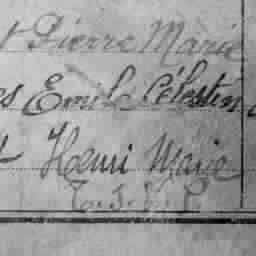 Pierre Marie
Emile Célestin
Henri Marie